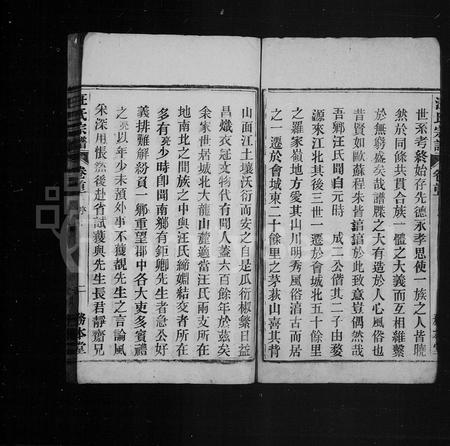 世系考終始存先德永孝思使一族之人皆曉
然於同條共貫合族一體之大義而互相維繫
於無窮盛矣哉譜牒之大有造於人心風俗也
昔賢如歐蘇程朱皆諳諳於此致意豈偶然哉
吾鄉汪氏聞自元時 成二公偕其二子由婺
源來江北其後三世一遷於會城北五十餘里
之羅家嶺地方愛其山川明秀風俗湻古而居
之一遷於會城東二十餘里之茅荻山喜其背
汪氏宗譜
山面江土壤沃衍而安之自是瓜衍椒繁日益
昌熾衣冠文物代有聞人蓋六百餘年於茲矣
余家世居城北大龍山麓適當汪氏兩支所在
地南北之間族之中與汪氏締姻結交者所在
多有余少時即聞南鄉有鉅卿先生者急公好
義排難解紛負一鄉重望郡中各大吏多賓禮
之余以年少未預外事不獲覩先生之言論風
采深用悵然後赴省試獲與先生長君靜齋兄
汪氏宗譜 卷首 序 二 務本堂